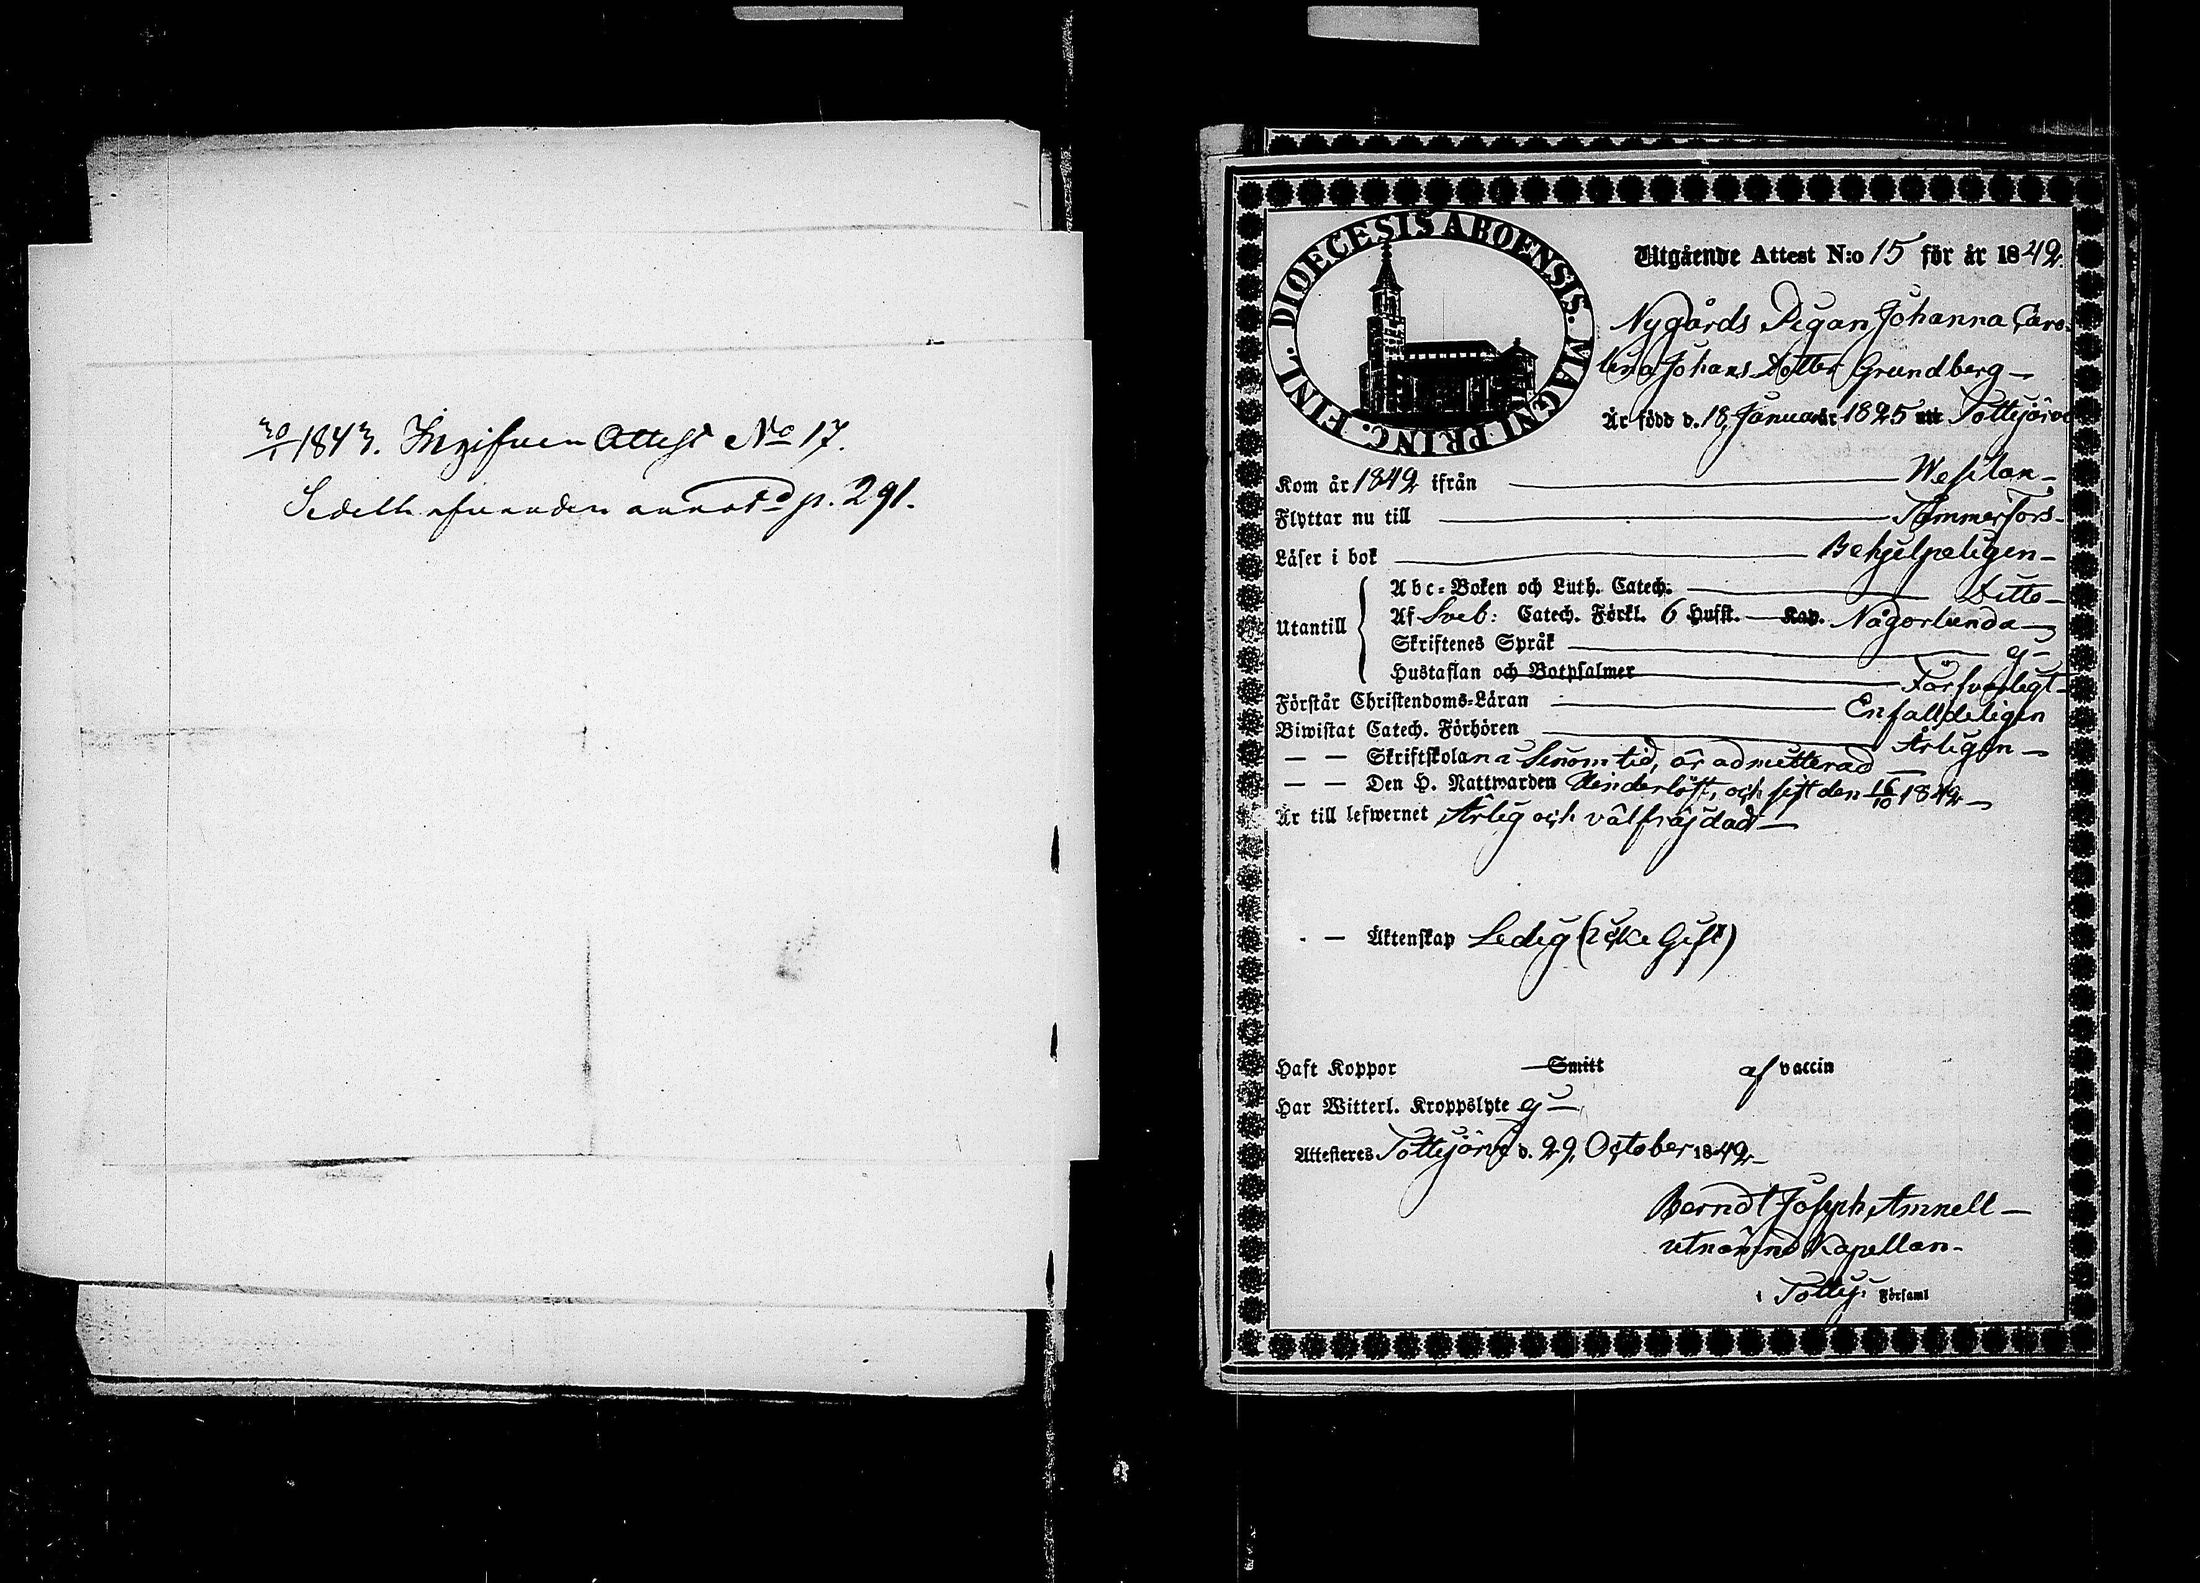 30/1 1843. Ingifven Attest No 17.
Sedelh annot:d p. 291.
DIOECESIS ABOENSIS. MAGNI PRINC. FINL.
Utgående Attest N:o 15 för år 1842.
Nygårds Pigan Johanna Caro-
lina Johans Dotter Grundberg —
Är född d. 18 Januarii 1825 uti Tottijärvi
Kom år 1842 ifrån — Wesilax —
Flyttar nu till — Tammerfors —
Läser i bok — Behjelpeligen —
Utantill
Abc-Boken och Luth. Catech. — Ditto —
Af Sveb: Catech. Förkl. 6 Hufst. — Kap. Någorlunda —
Skriftenes Språk — ej —
Hustaflan och Botpsalmer — Försvarligt —
Förstår Christendoms-Läran — Enfalldeligen
Biwistat Catech. Förhören — Årligen —
— — Skriftskolan i sinom tid, är admitterad —
— — Den H. Nattwarden Oförhindradt, och sist den 16/10 1842 —
Är till lefwernet Ärlig och välfräjdad —
- — Äktenskap Ledig (icke Gift)
Haft Koppor — Smitt af vaccin
Har Witterl. Kroppslyte ej —
Attesteres Tottijärvi d. 29, October 1842 —
Berndt Joseph Amnell —
utnämnd Kapellan —
i Tottij: Församl